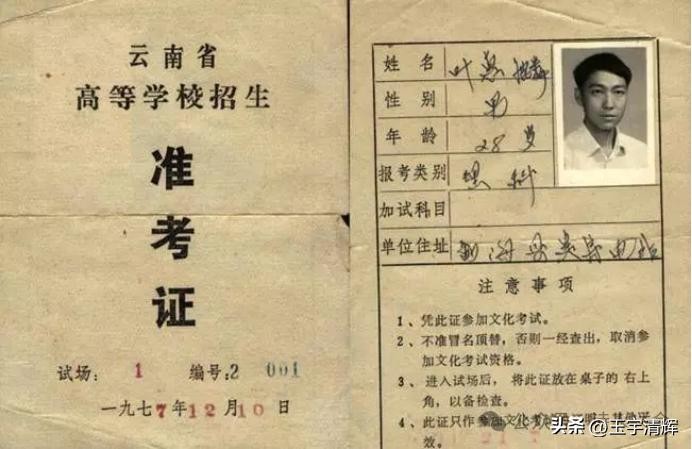 云南省
高等学校招生
准
考
证
试场: 1 编号:2 001
一九七7年12月10日
姓名 叶
性别 男
年龄 28岁
报考类别 理科
加试科目
单位住址
注意事项
1、凭此证参加文化考试。
2、不准冒名顶替，否则一经查出，取消参
加文化考试资格。
3、进入试场后，将此证放在桌子的右上
角，以备检查。
4、此证只作参加文化考
效。
头条 @玉宇清辉